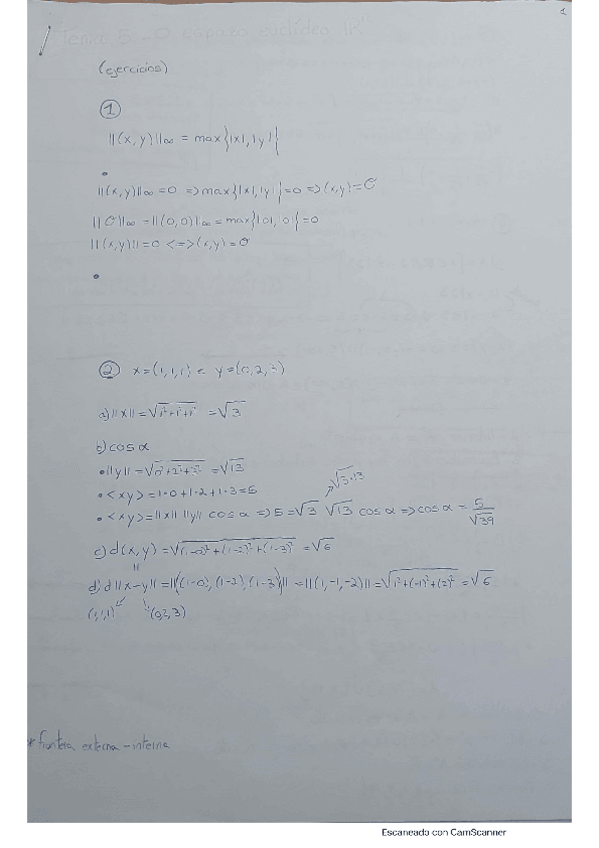 1
Tema E-0 espazo euclídeo ℝⁿ
(ejercicios)
①
||(x,y)||∞ = max{|x|,|y|}
•
||(x,y)||∞ = 0 => max{|x|,|y|} = 0 => (x,y) = O
||O||∞ = ||(0,0)||∞ = max{|0|,|0|} = 0
||(x,y)|| = 0 <=> (x,y) = O
•
② x = (1,1,1) e y = (0,2,3)
a) ||x|| = √1²+1²+1² = √3
b) cos α
• ||y|| = √0²+2²+3² = √13
• <xy> = 1·0+1·2+1·3 = 5
√3·13
• <xy> = ||x|| ||y|| cos α => 5 = √3 √13 cos α => cos α = 5/√39
c) d(x,y) = √(1-0)²+(1-2)²+(1-3)² = √6
||
d) d||x-y|| = ||(1-0), (1-2), (1-3)|| = ||(1,-1,-2)|| = √1²+(-1)²+(2)² = √6
(1,1,1) (0,2,3)
* fronteira externa - interna
Escaneado con CamScanner